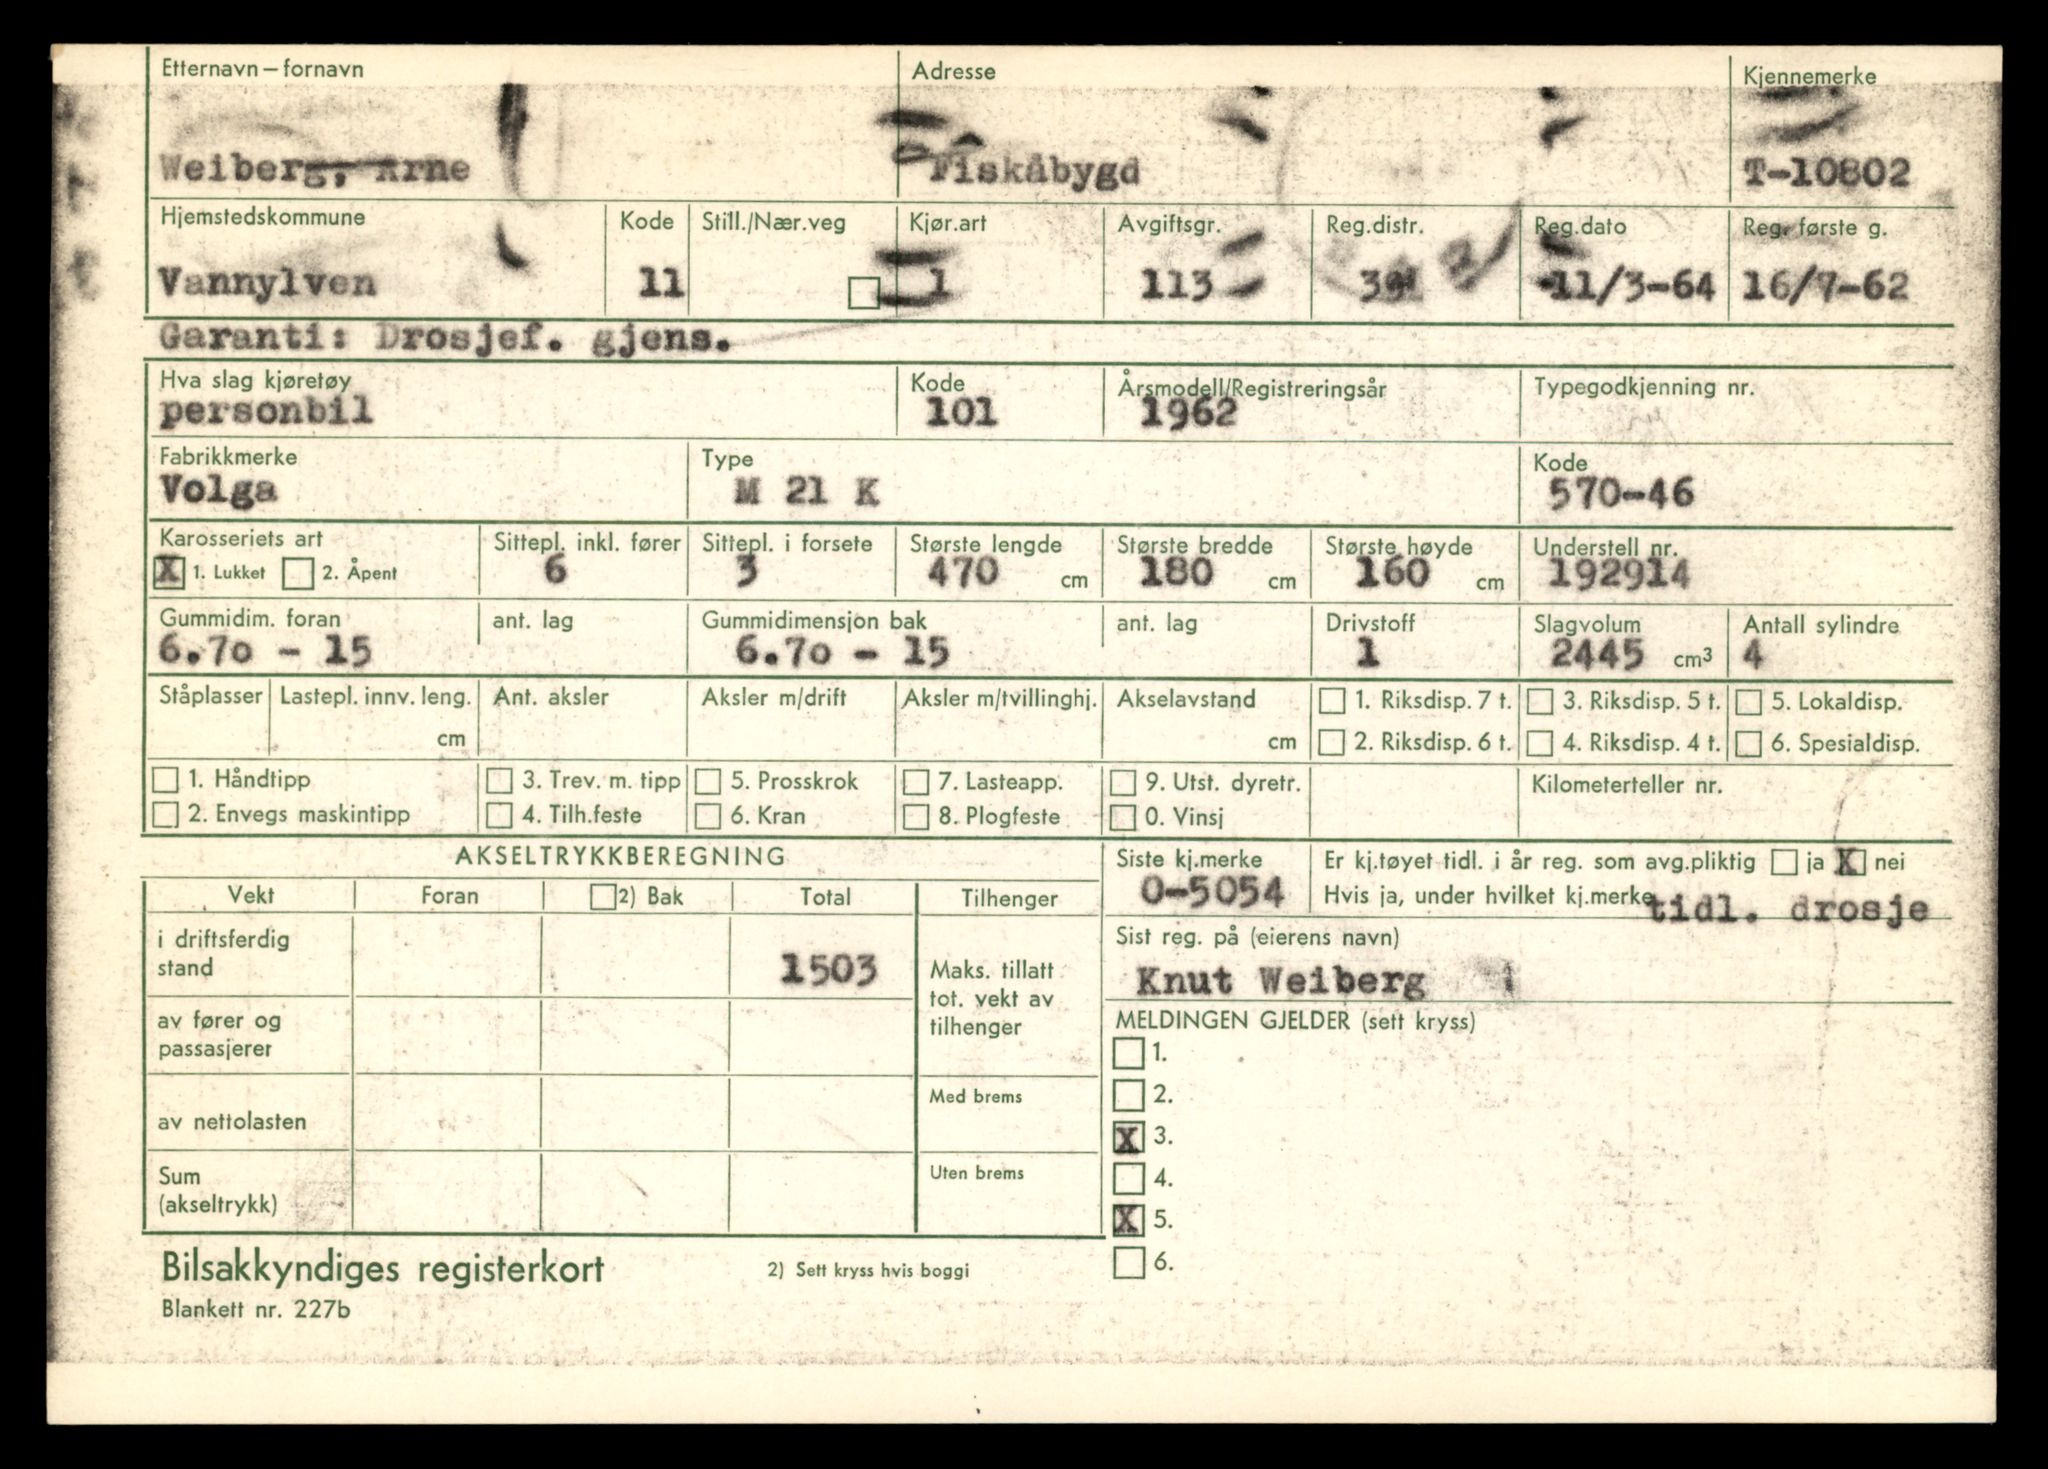 Etternavn – fornavn Adresse Kjennemerke
Weiberg, Arne Fiskåbygd T-10802
Hjemstedskommune Kode Still./Nær.veg Kjør.art Avgiftsgr. Reg.distr. Reg.dato Reg. første g.
Vannylven 11 1 113 11/3-64 16/7-62
Garanti: Drosjef. gjens.
Hva slag kjøretøy Kode Årsmodell/Registreringsår Typegodkjenning nr.
personbil 101 1962
Fabrikkmerke Type Kode
Volga M 21 K 570-46
Karosseriets art Sittepl. inkl. fører Sittepl. i forsete Største lengde Største bredde Største høyde Understell nr.
X 1. Lukket 2. Åpent 6 3 470 cm 180 cm 160 cm 192914
Gummidim. foran ant. lag Gummidimensjon bak ant. lag Drivstoff Slagvolum Antall sylindre
6.70 - 15 6.70 - 15 1 2445 cm³ 4
Ståplasser Lastepl. innv. leng. Ant. aksler Aksler m/drift Aksler m/tvillinghj. Akselavstand 1. Riksdisp. 7 t. 3. Riksdisp. 5 t. 5. Lokaldisp.
cm cm 2. Riksdisp. 6 t. 4. Riksdisp. 4 t. 6. Spesialdisp.
1. Håndtipp 3. Trev. m. tipp 5. Prosskrok 7. Lasteapp. 9. Utst. dyretr. Kilometerteller nr.
2. Envegs maskintipp 4. Tilh.feste 6. Kran 8. Plogfeste 0. Vinsj
AKSELTRYKKBEREGNING
Vekt Foran 2) Bak Total Tilhenger
i driftsferdig
stand 1503
Maks. tillatt
tot. vekt av
tilhenger
av fører og
passasjerer
Med brems
av nettolasten
Uten brems
Sum
(akseltrykk)
Siste kj.merke Er kj.tøyet tidl. i år reg. som avg.pliktig ja X nei
O-5054 Hvis ja, under hvilket kj.merke tidl. drosje
Sist reg. på (eierens navn)
Knut Weiberg
MELDINGEN GJELDER (sett kryss)
1.
2.
X 3.
4.
X 5.
6.
Bilsakkyndiges registerkort 2) Sett kryss hvis boggi
Blankett nr. 227b